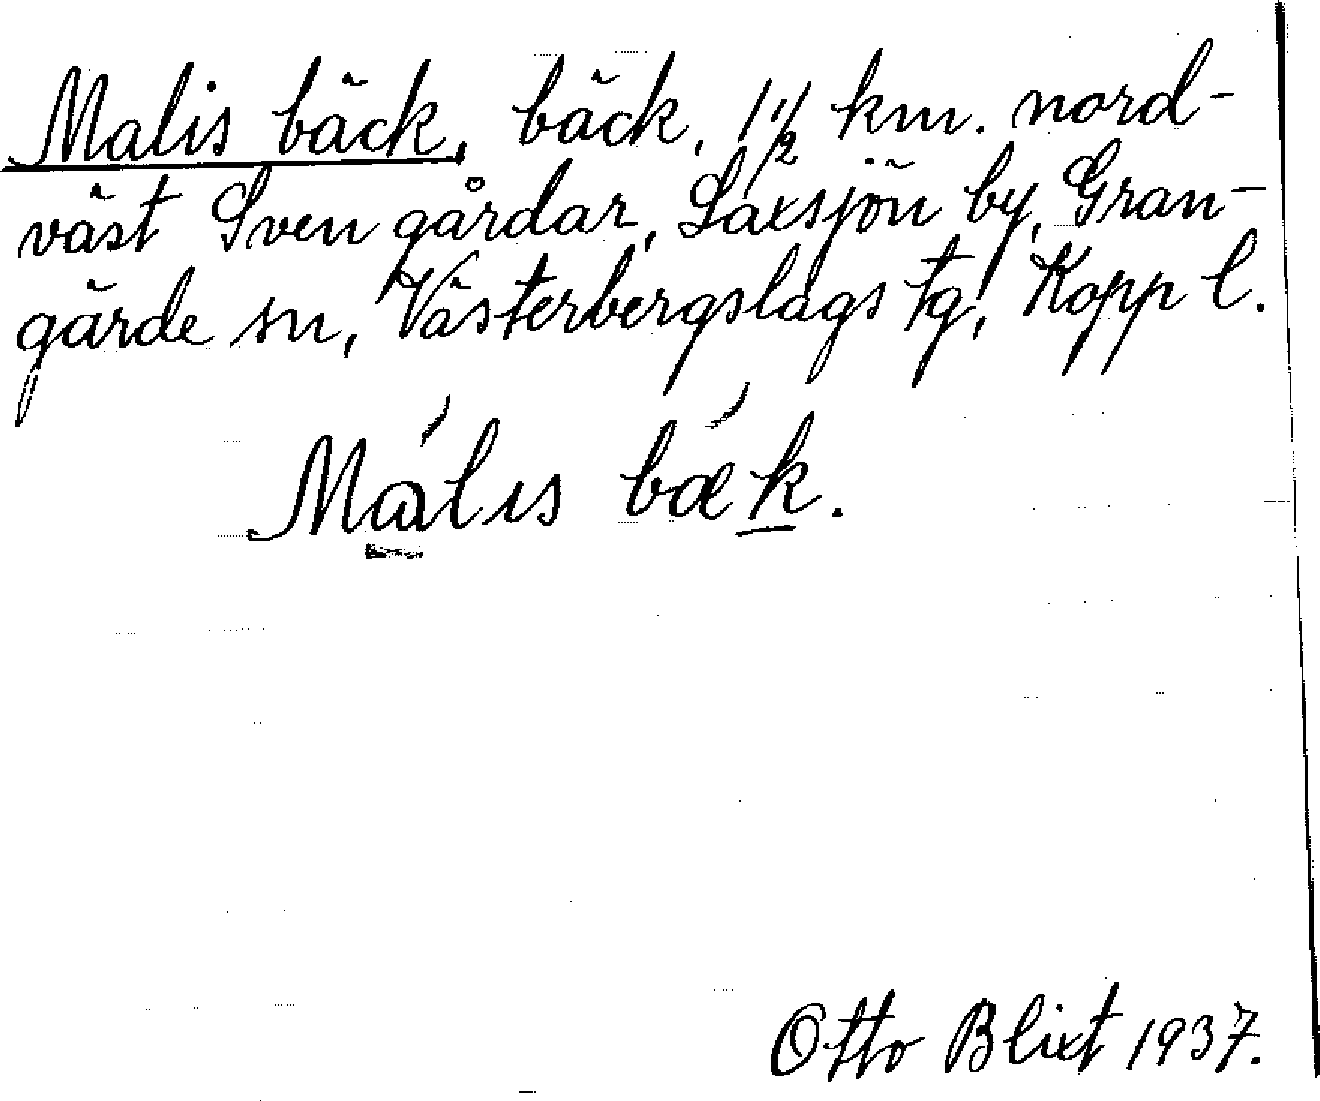 Malis bäck, bäck, 1 1/2 km. nord-
väst Svengårdar, Laxsjön by, Gran-
gärde sn, Västerbergslags tg, Kopp l.
Malis bæk.
Otto Blixt 1937.